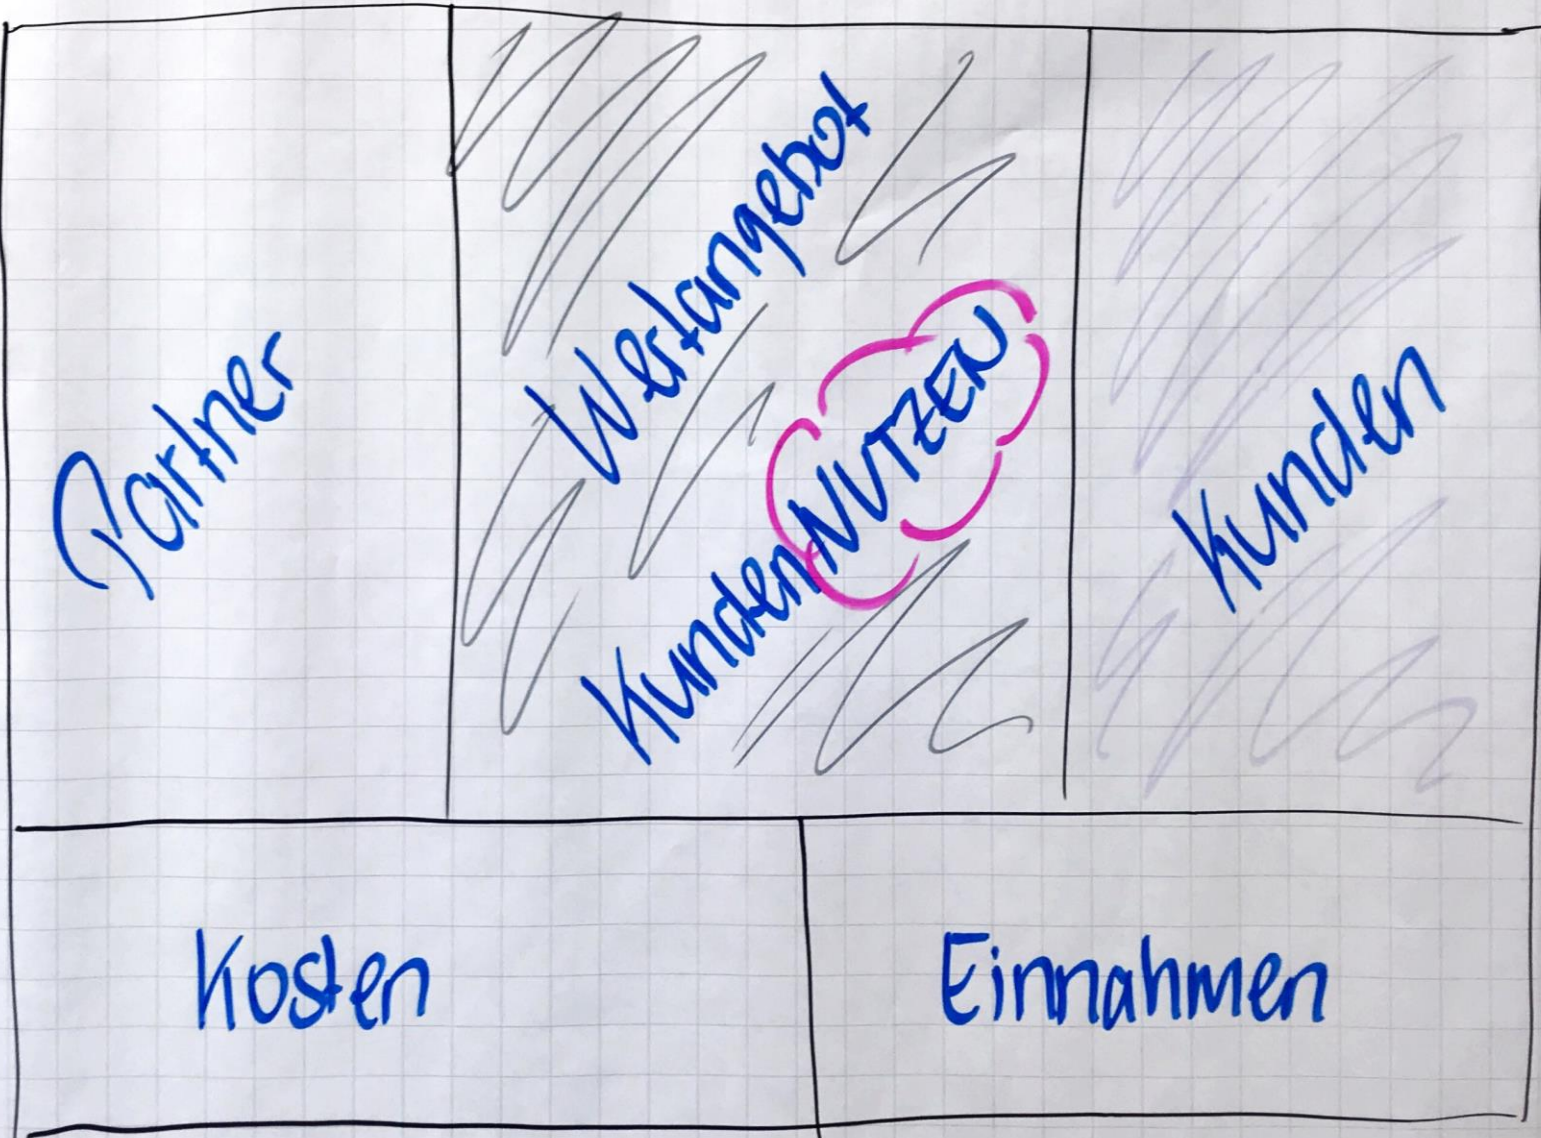 Partner
Wertangebot
KundenNUTZEN
Kunden
Kosten
Einnahmen